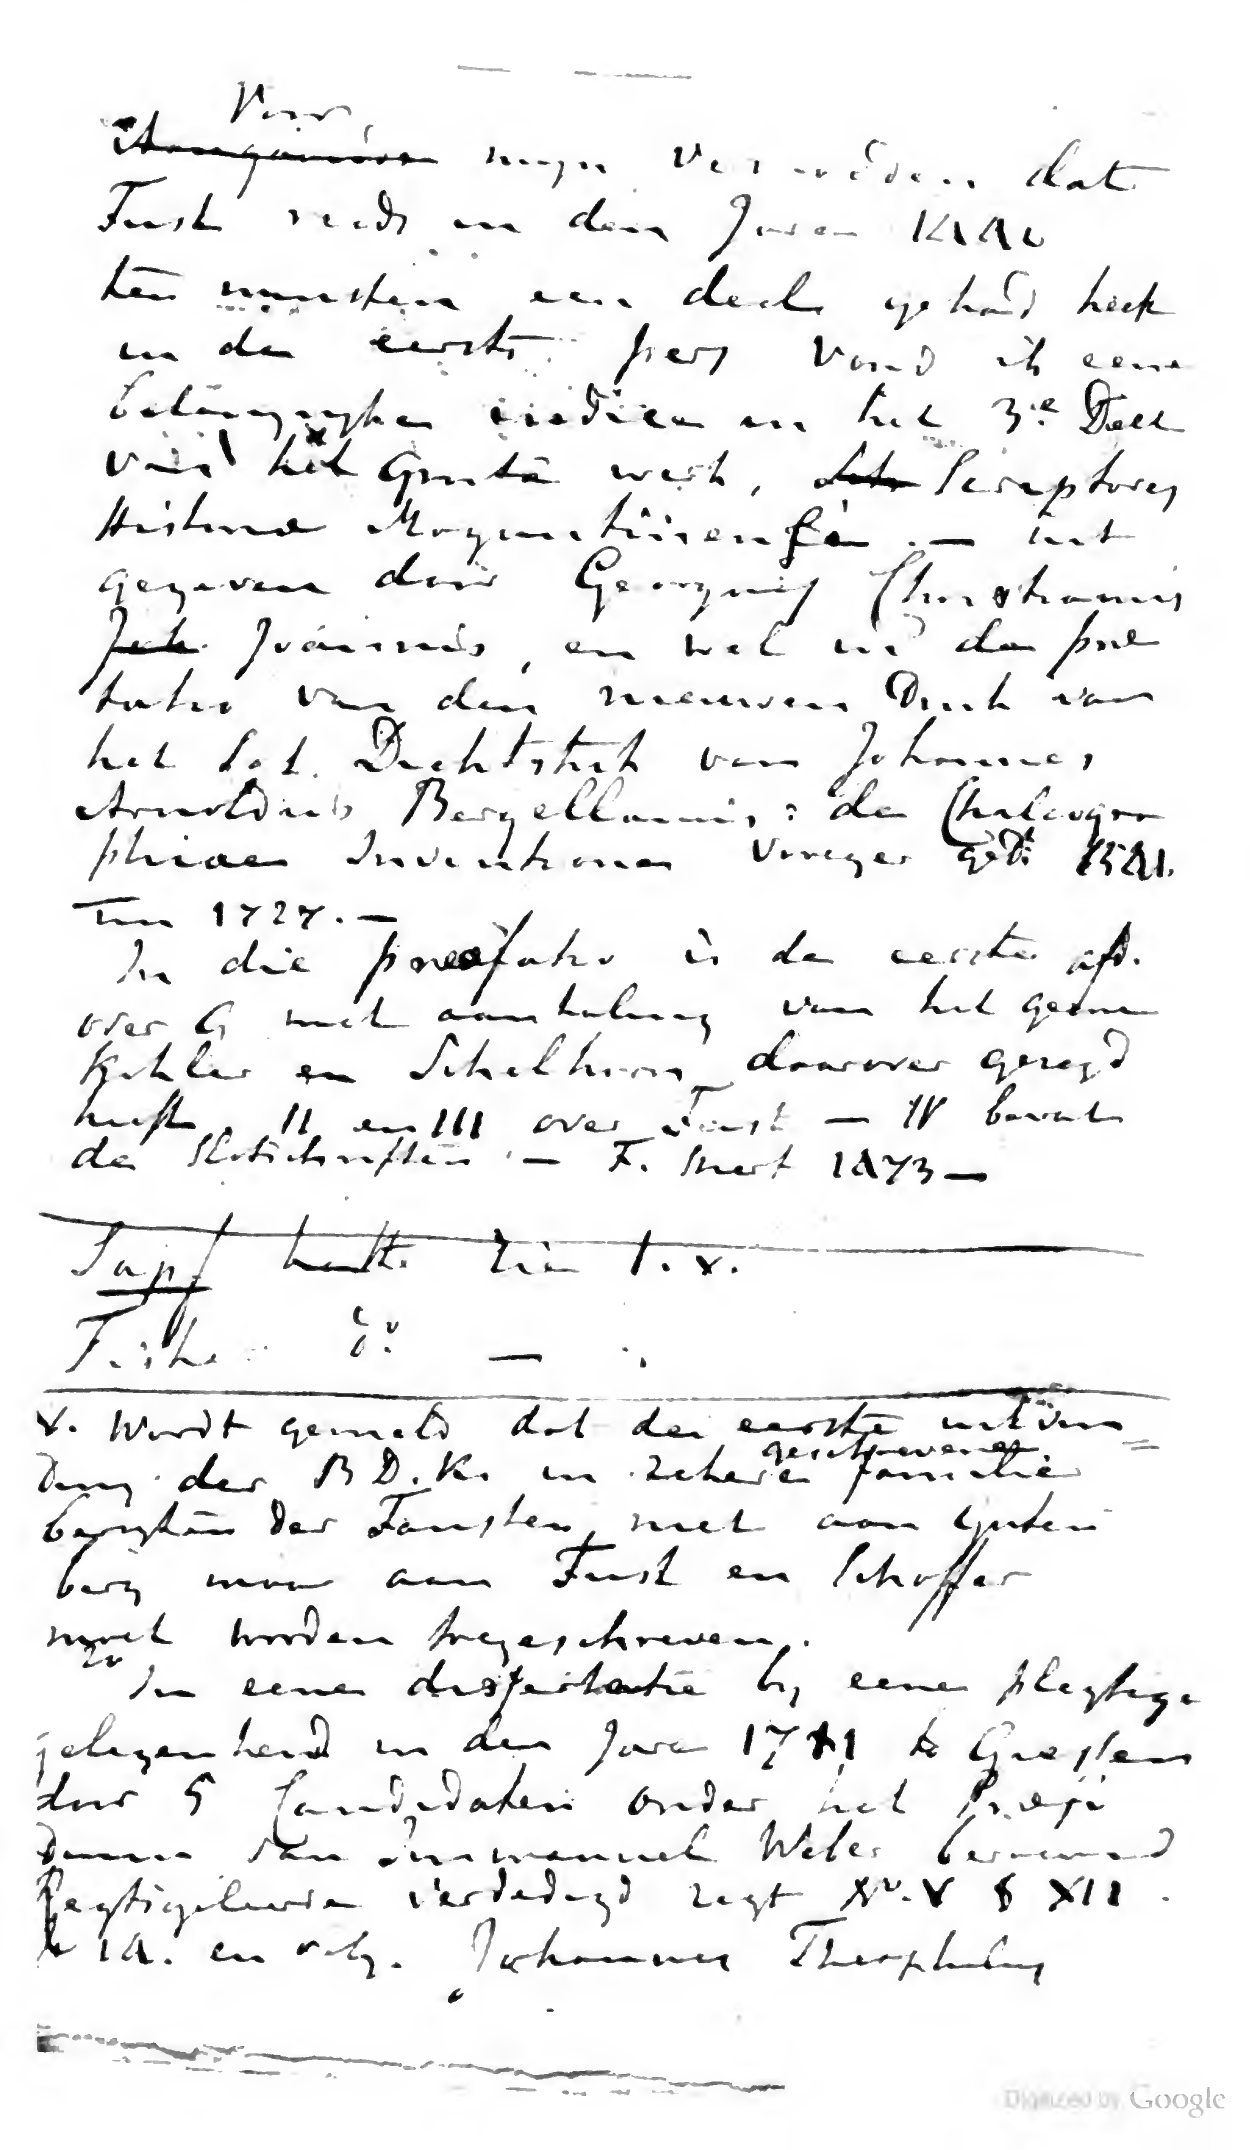 Voor
mijn vermoeden dat
Fust reeds in den Jare 1440
ten minsten een deel gehad heeft
in de eerste pers vond ik eene
belangryke indicia in het 3e Deel
van het Grote werk, Scriptores
Historiae Moguntinensia — uit
gegeven door Georgius Christianus
Joannis, en wel in de prae
fatio van den nieuwen Druk van
het Lat. Dichtstuk van Johannes
Arnoldus Bergellanus: de Chalcogra
phiae Inventione vroeger gedt 1541.
in 1727. —
In die praefatio is de eerste afd.
over G met aanhaling van het geen
Kohler en Schelhorn daarover gezegd
heeft, II en III over Fust — IV bevat
de Slotschriften — F. sterf 1473 —
Sapf heeft Zie t. x.
do. —
x. Wordt gemeld dat de eerste uitvin
ding der B D. K. in zekere geschrevene familie
berigten der Fausten, niet aan Guten
berg maar aan Fust en Schoffer
moet worden toegeschreven.
2o In eene dissertatie by eene plegtige
gelegenheid in den Jare 1741 te Giessen
door 5 Candidaten onder het Praesi
dium van Immanuel Weber beroemd
Regtsgeleerde verdedigd zegt No. V § XII.
14. en volg. Johannes Theophilus
Digitized by Google